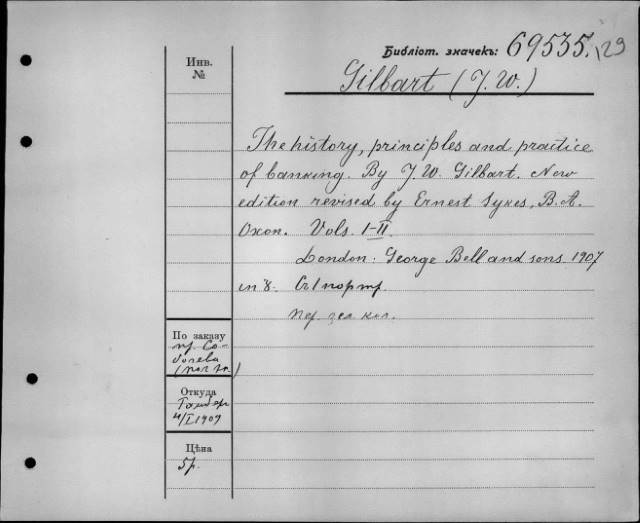 Библіот. значекъ: 69535. 29
Инв.
№
Gilbart (J. W.)
The history, principles and practice
of banking. By J. W. Gilbart. New
edition revised by Ernest Sykes, B. A.
Oxon. Vols. I-II.
London: George Bell and sons. 1907
in 8. Съ 1 портр.
пер. зел. кол.
По заказу
пр. Со-
болева
Откуда
4/I 1909
Цѣна
5р.